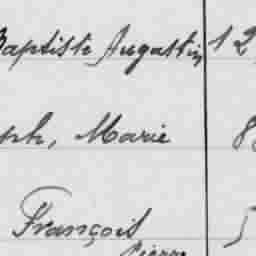 Baptiste Augustin 12
ph, Marie 8
François 5
Pierre